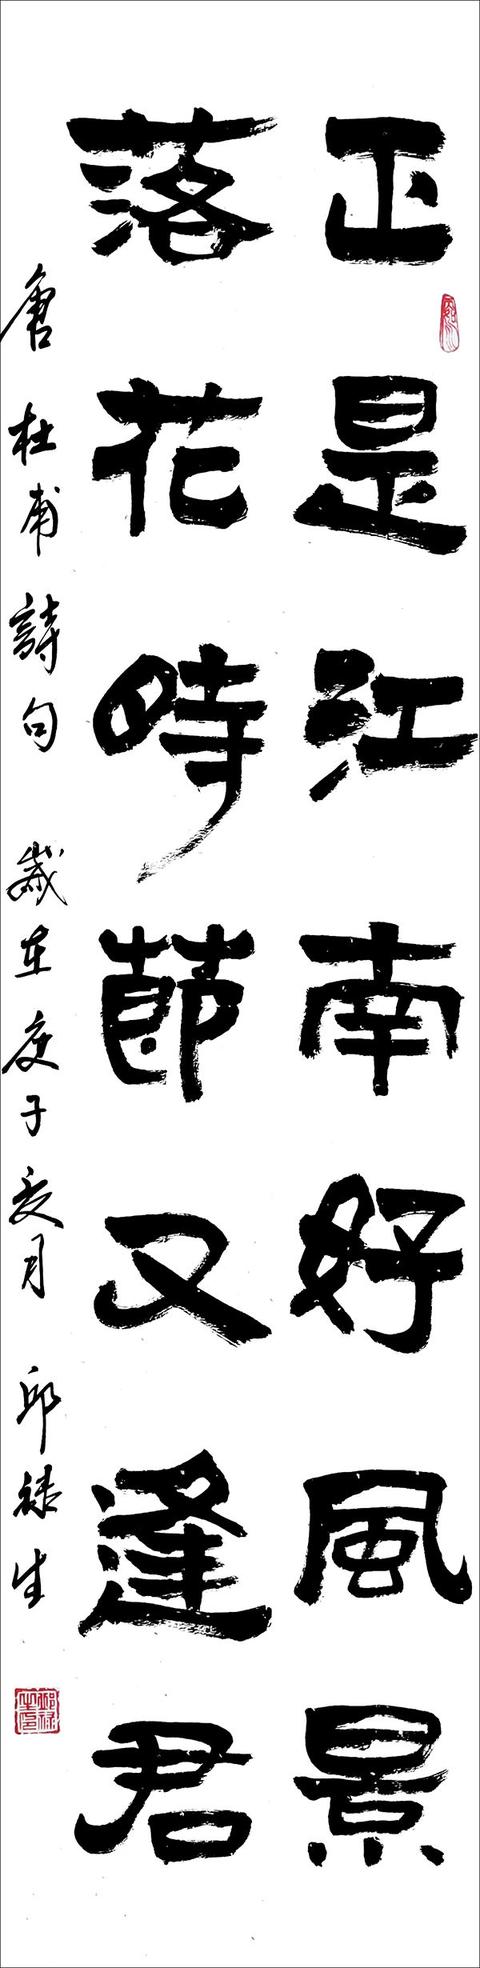 正是江南好風景
落花時節又逢君
唐 杜甫詩句 歲在庚子夏月 邱祿生